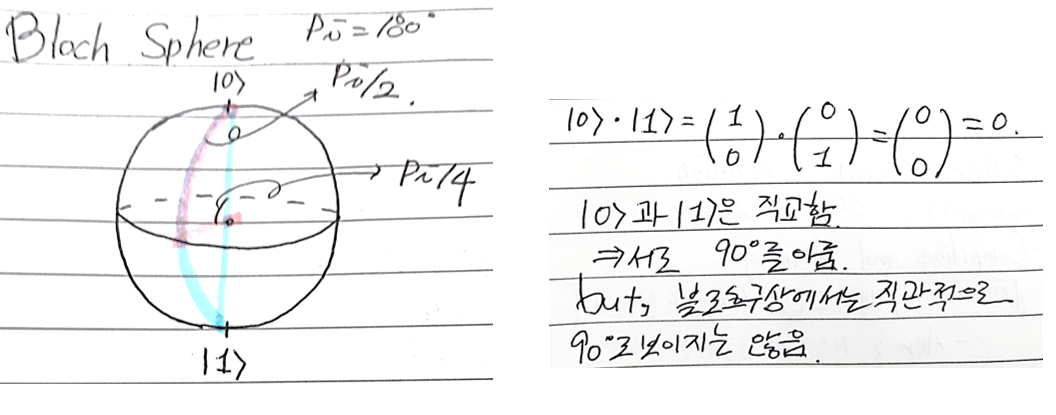 Bloch Sphere
Pi = 180°
|0⟩
Pi/2.
Pi/4
|1⟩
|0⟩·|1⟩ = (1 0)·(0 1) = (0 0) = 0.
|0⟩과 |1⟩은 직교함.
⇒서로 90°를 이룸.
but, 블로흐구상에서는 직관적으로
90°로 보이지는 않음.